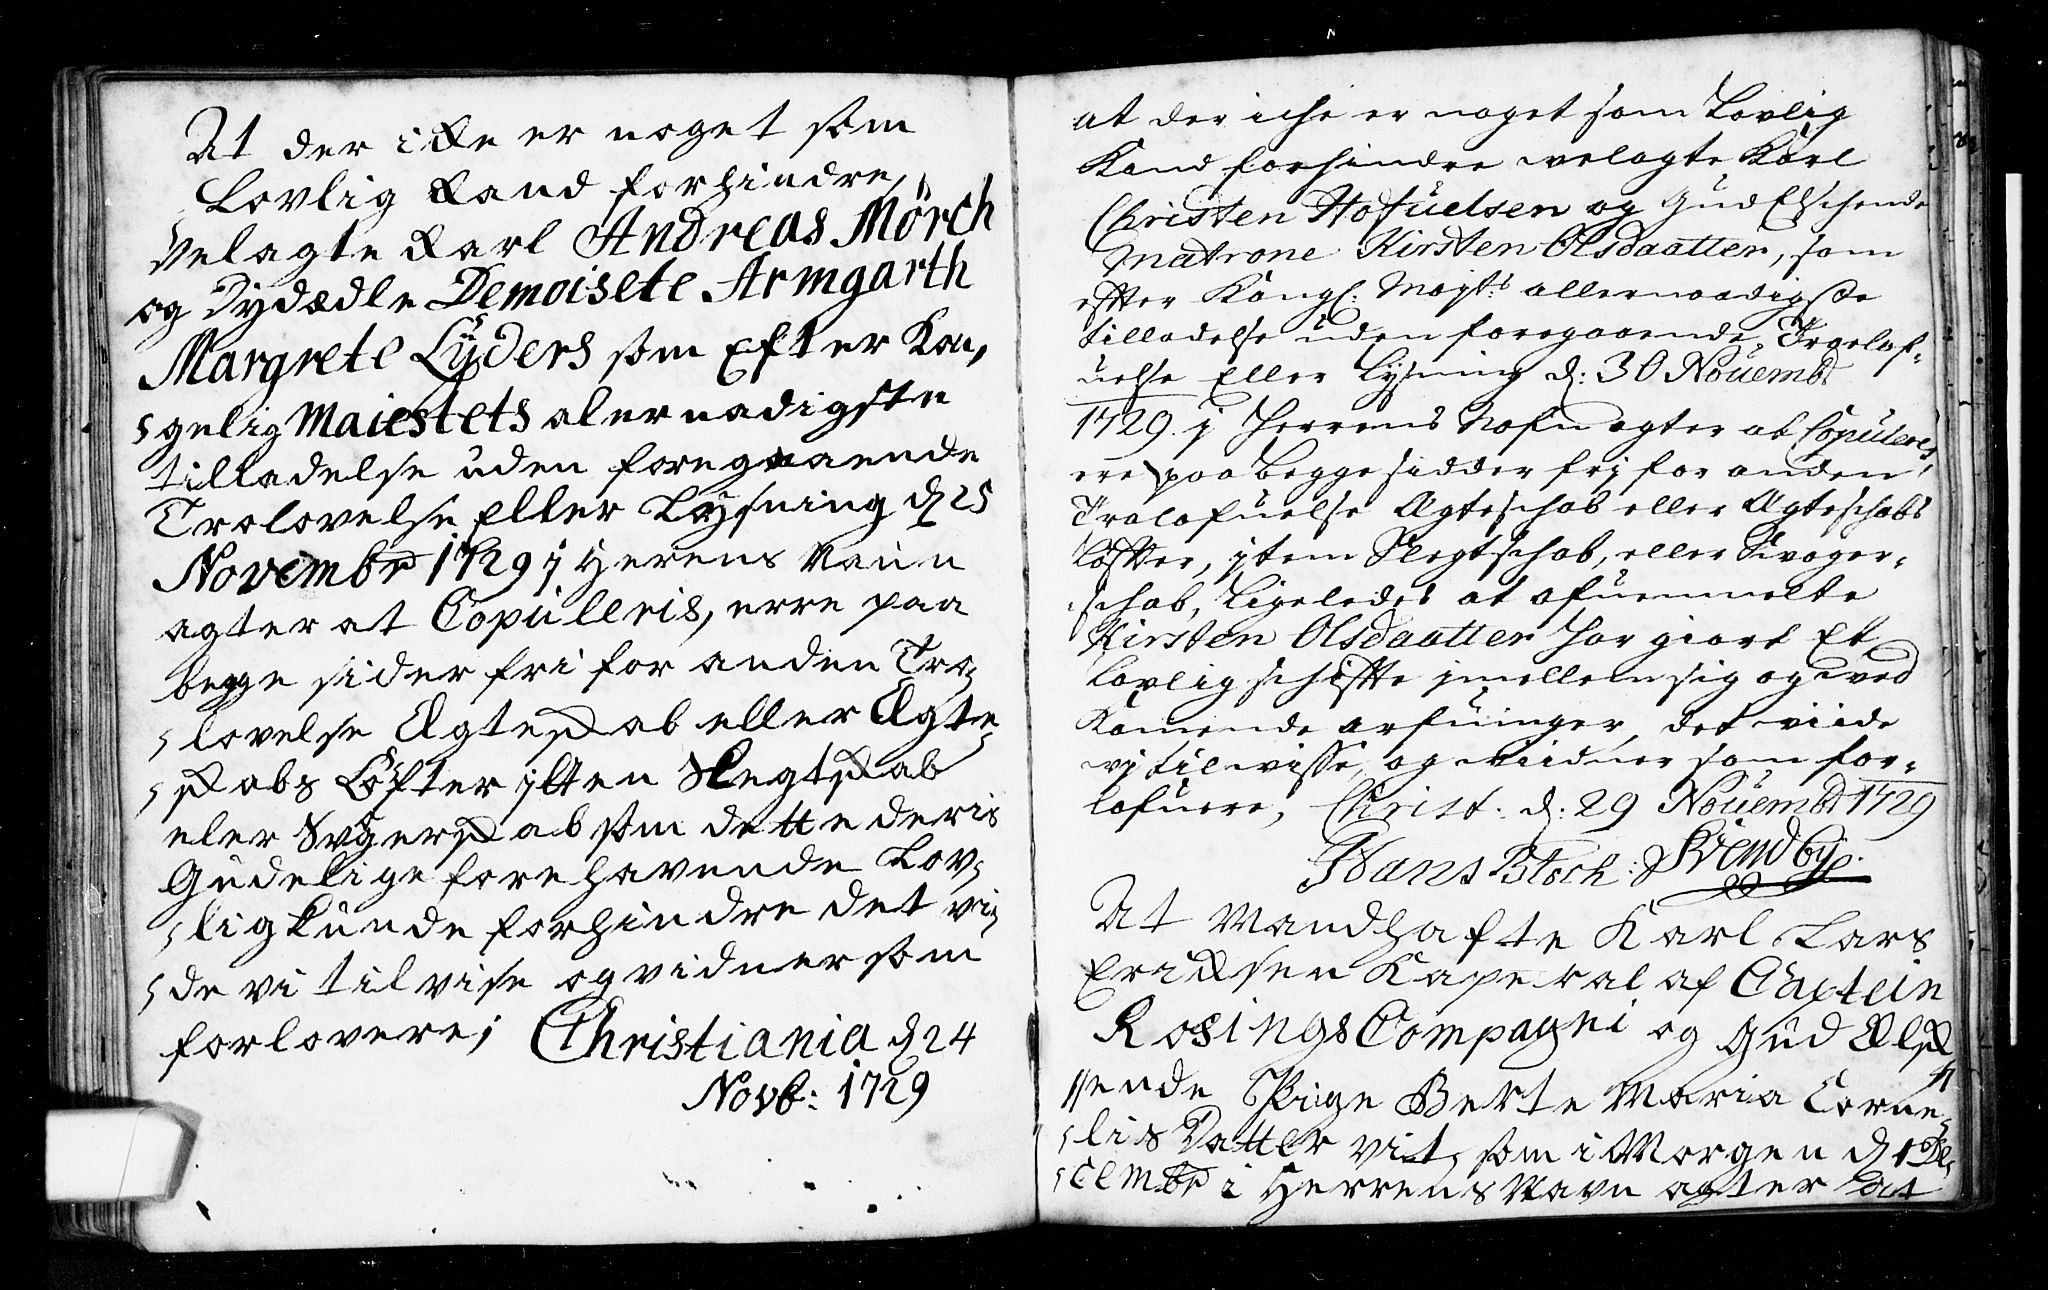 At der ikke er noget som
Lovlig kand forhindre,
Velagte Karl Andreas Mörch
og Dydædle Demoisele Armgarth
Margrete Lÿders som Efter Kon,
gelig Maiestets alernadigste
tilladelse uden foregaaende
Trolovelse Eller Lysning d 25
Novembr 1729 j Herens Naun
agter at Copulleris, erre paa
begge sider fri for anden Tro,
lovelse Ægteskab eller Ægte,
skabs Løfter jtten Slegtskab
eler Svgerskab som dette deris
Gudelige forehavende Lov,
lig kunde forhindre det vi,
de vi til vise og vidner som
forlovere; Christiania d 24
Novb: 1729
at der iche er noget som Lovlig
Kand forhindre welagte Karl
Christen Hofuelsen og Gud Elschende
Matrone Kirsten Olsdaatter, som
efter Kongl: Mayts allernaadigste
tilladelse uden foregaaende Troelof,
uelse Eller Lysning d: 30 Nouembr
1729 j Herrens Nafn agter at Copuleres,
ere paa begge sidder frj for anden
Trolofuelse Ægteschab eller Ægteschabs
Løfter, jtem Slegtschab, eller Svoger,
schab, Ligeledes at ofuenmelte
Kirsten Olsdaatter har giort Et
Lovlig schifte jmellem sig og wed
Komende arfuinger, det viide
vj til wisse, og widner som for,
lofuere, Christ: d: 29 Nouembr 1729
Hans Bloch: Svendby.
At Mandhafte Karl Lars
Eriksen Kaperal af Captein
Rosings Compagni og Gud Elsk
ende Pige Berte Maria Corne,
lis Datter vit, som i Morgen d 1 De,
cembr i Herrens Navn agter at